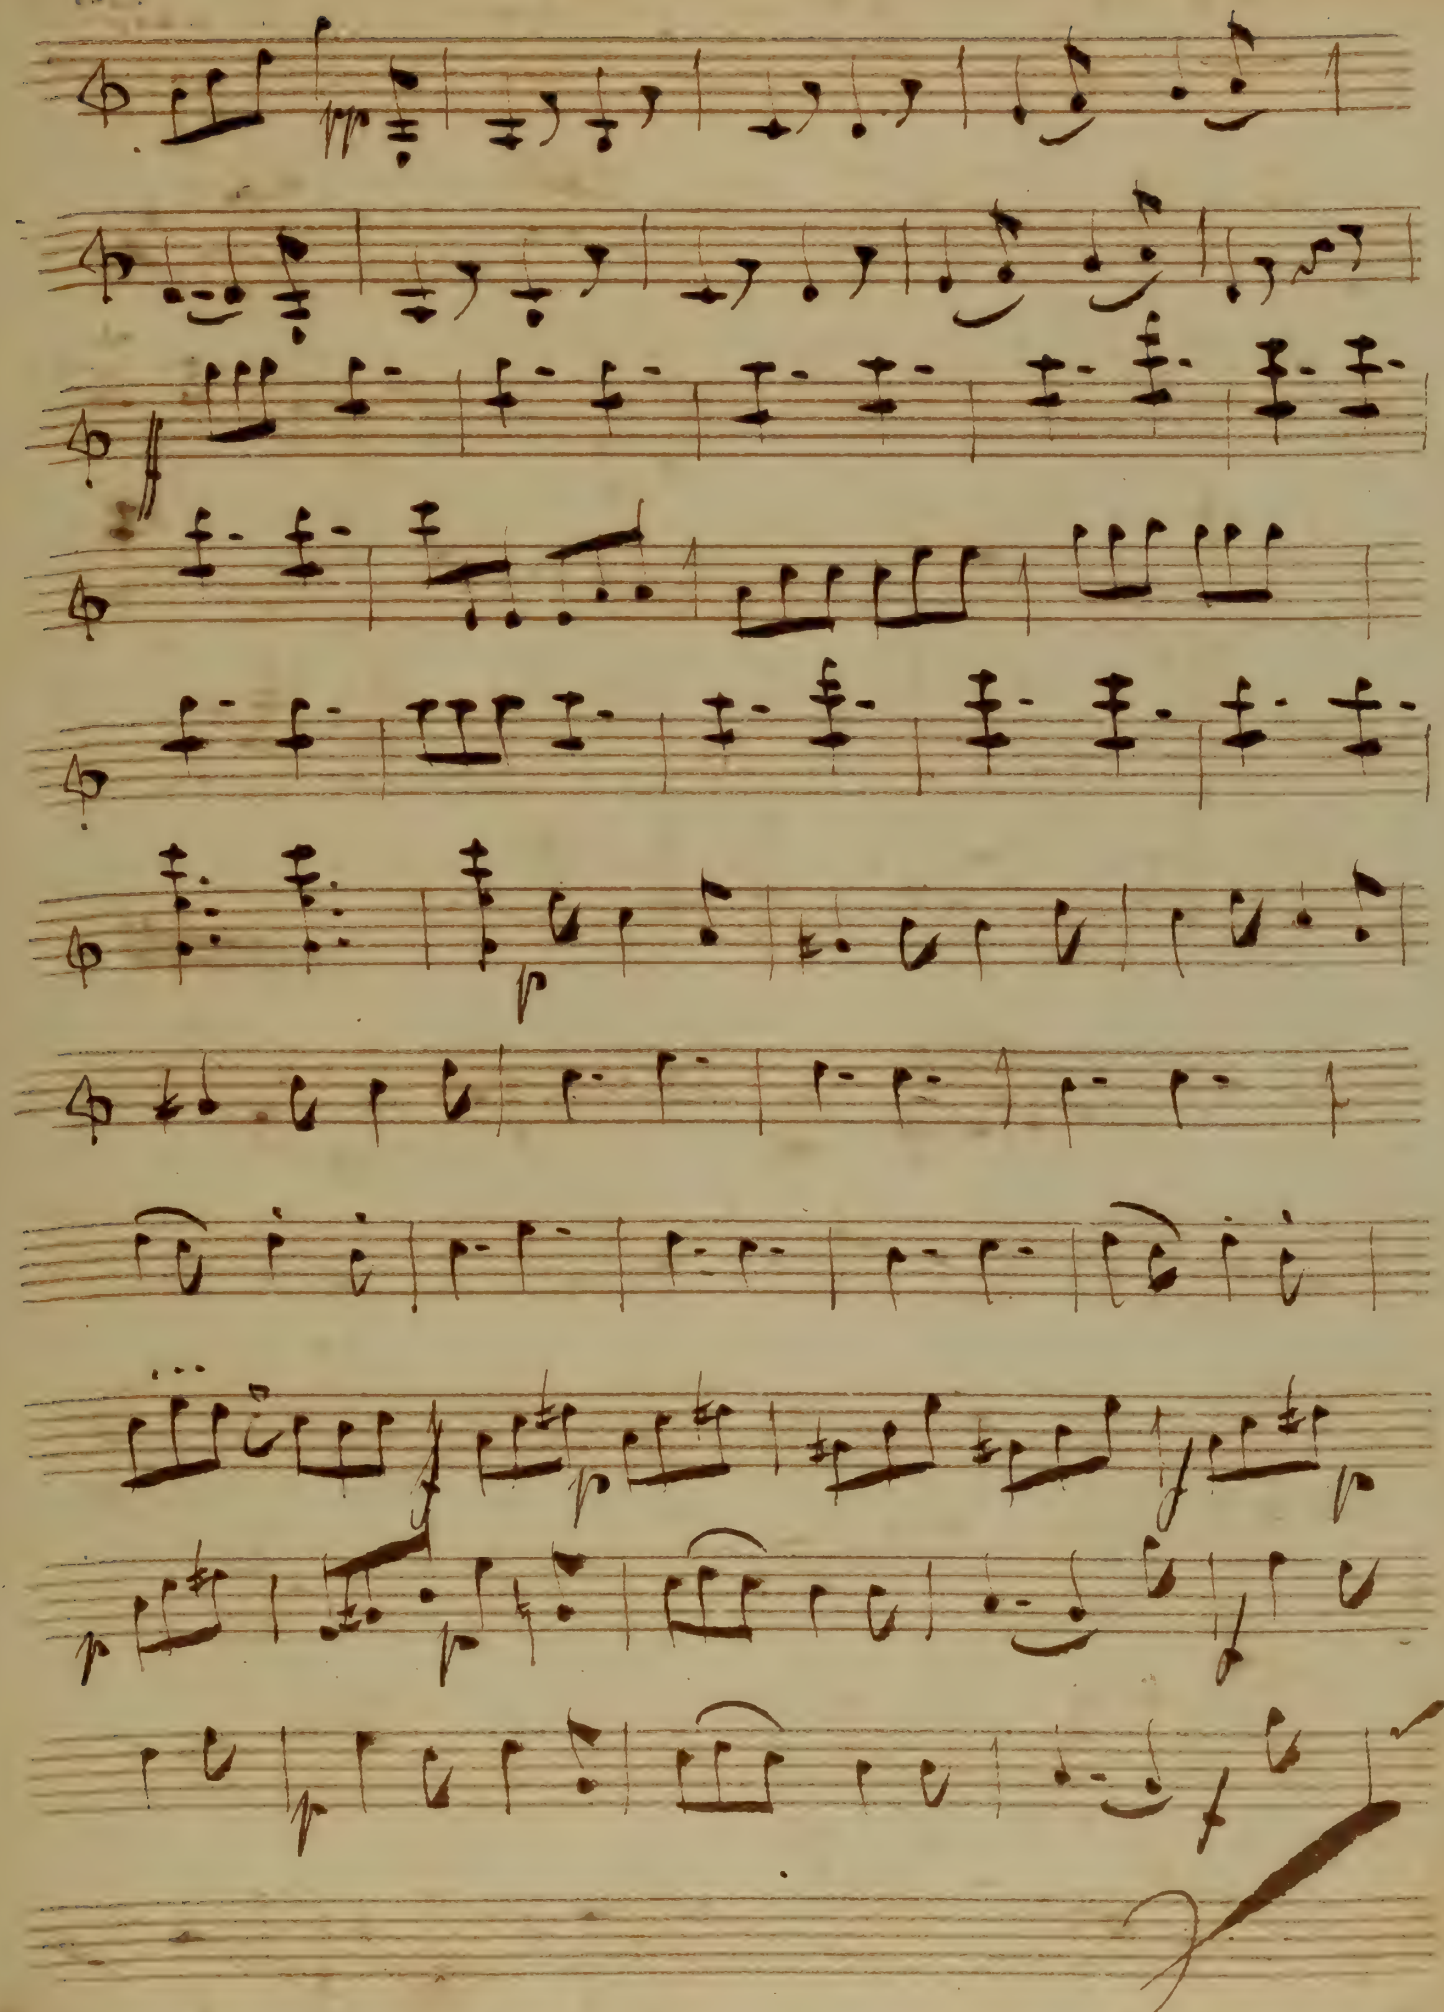 pp
ff
p
f p f p
p p f
p f